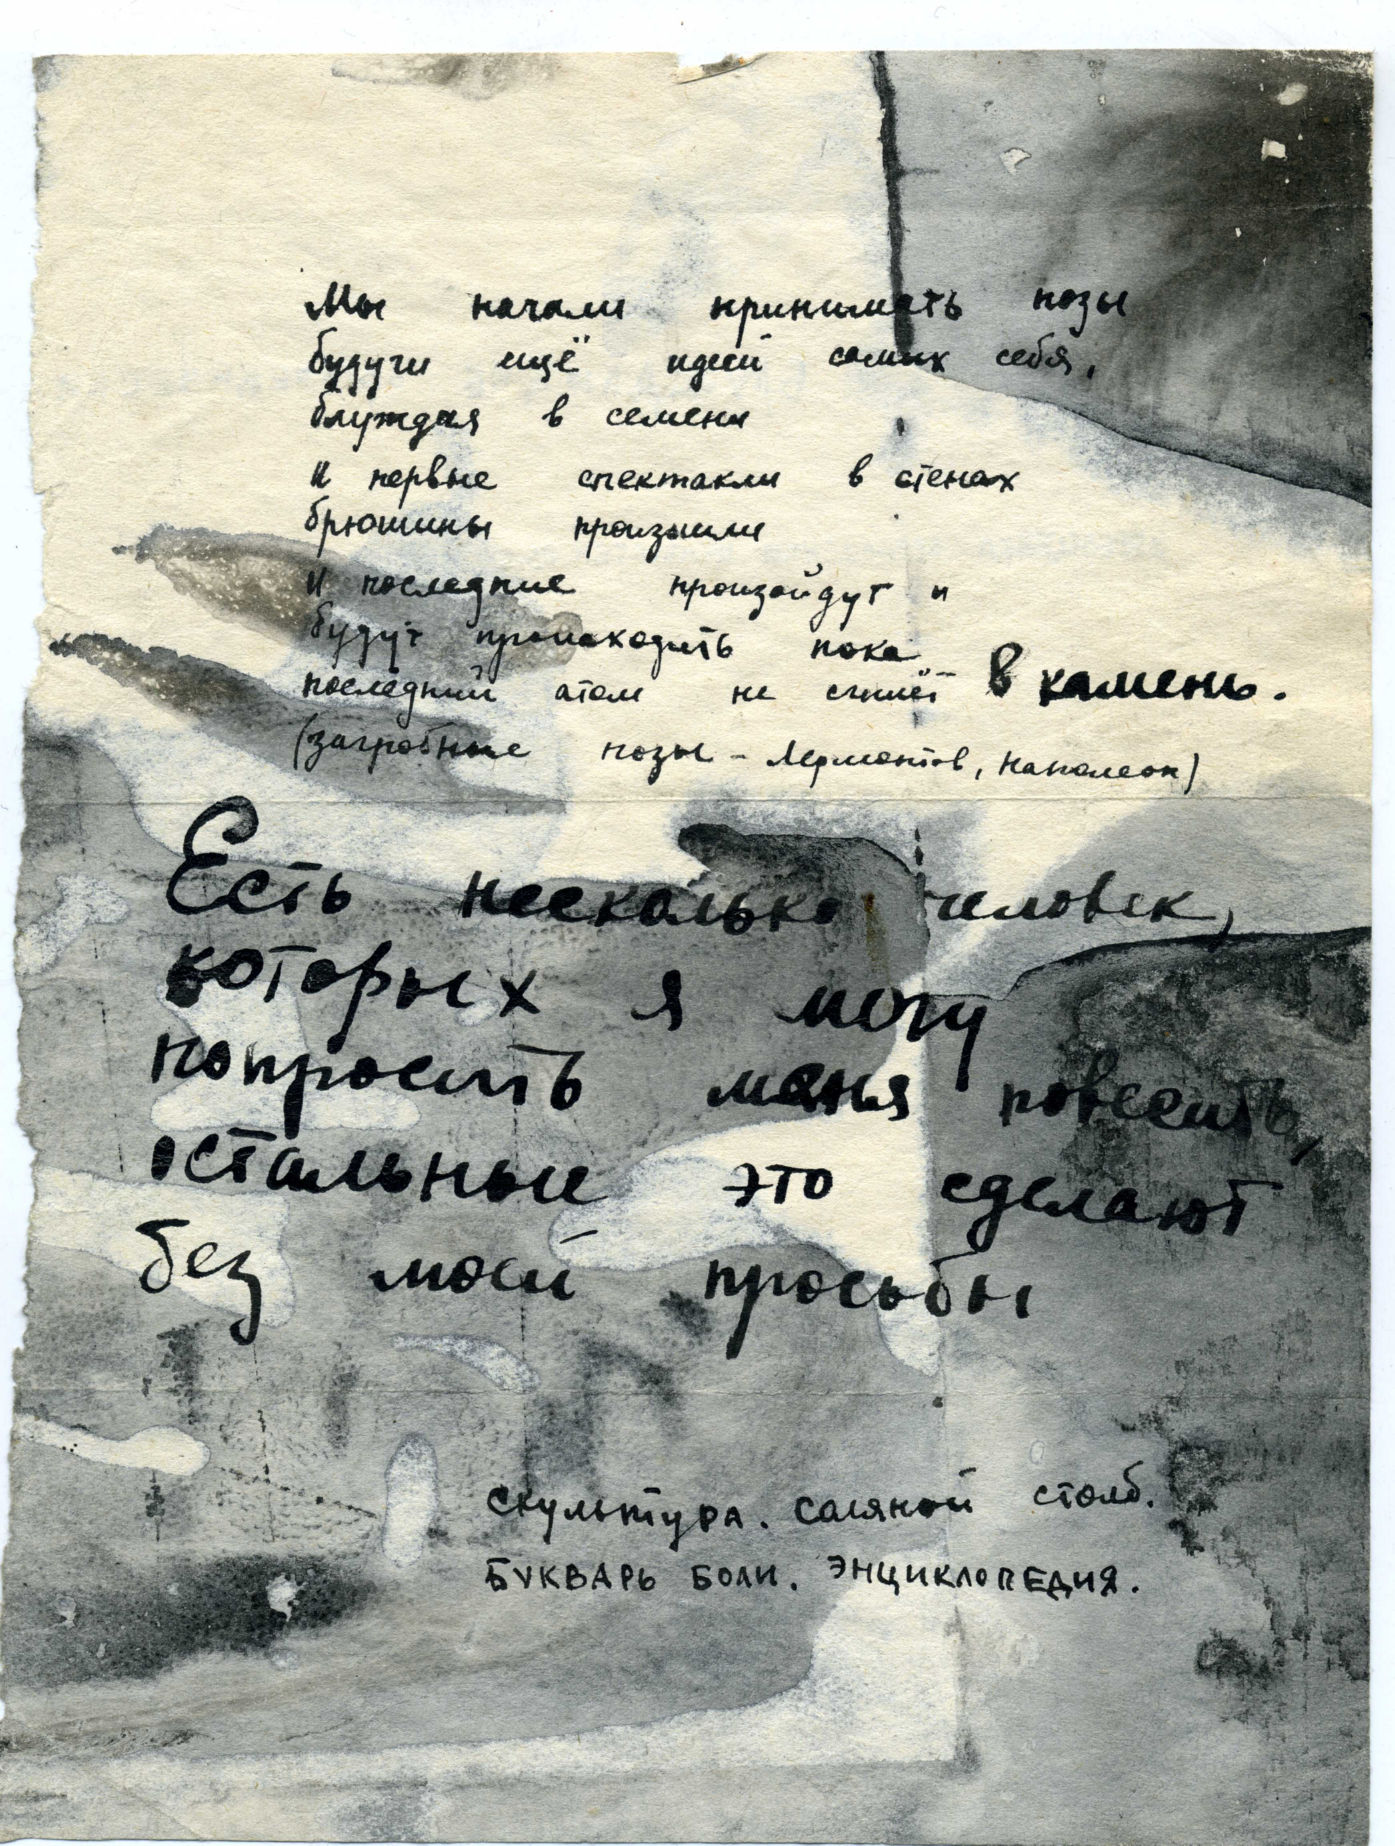 Мы начали принимать позы
будучи ещё идеей самих себя,
блуждая в семени
И первые спектакли в стенах
брюшины произошли
И последние произойдут и
будут происходить пока
последний атом не сгниёт в камень.
(загробные позы - Лермонтов, Наполеон)
Есть несколько человек,
которых я могу
попросить меня повесить,
остальные это сделают
без моей просьбы
скульптура. соляной столб.
БУКВАРЬ БОЛИ. ЭНЦИКЛОПЕДИЯ.